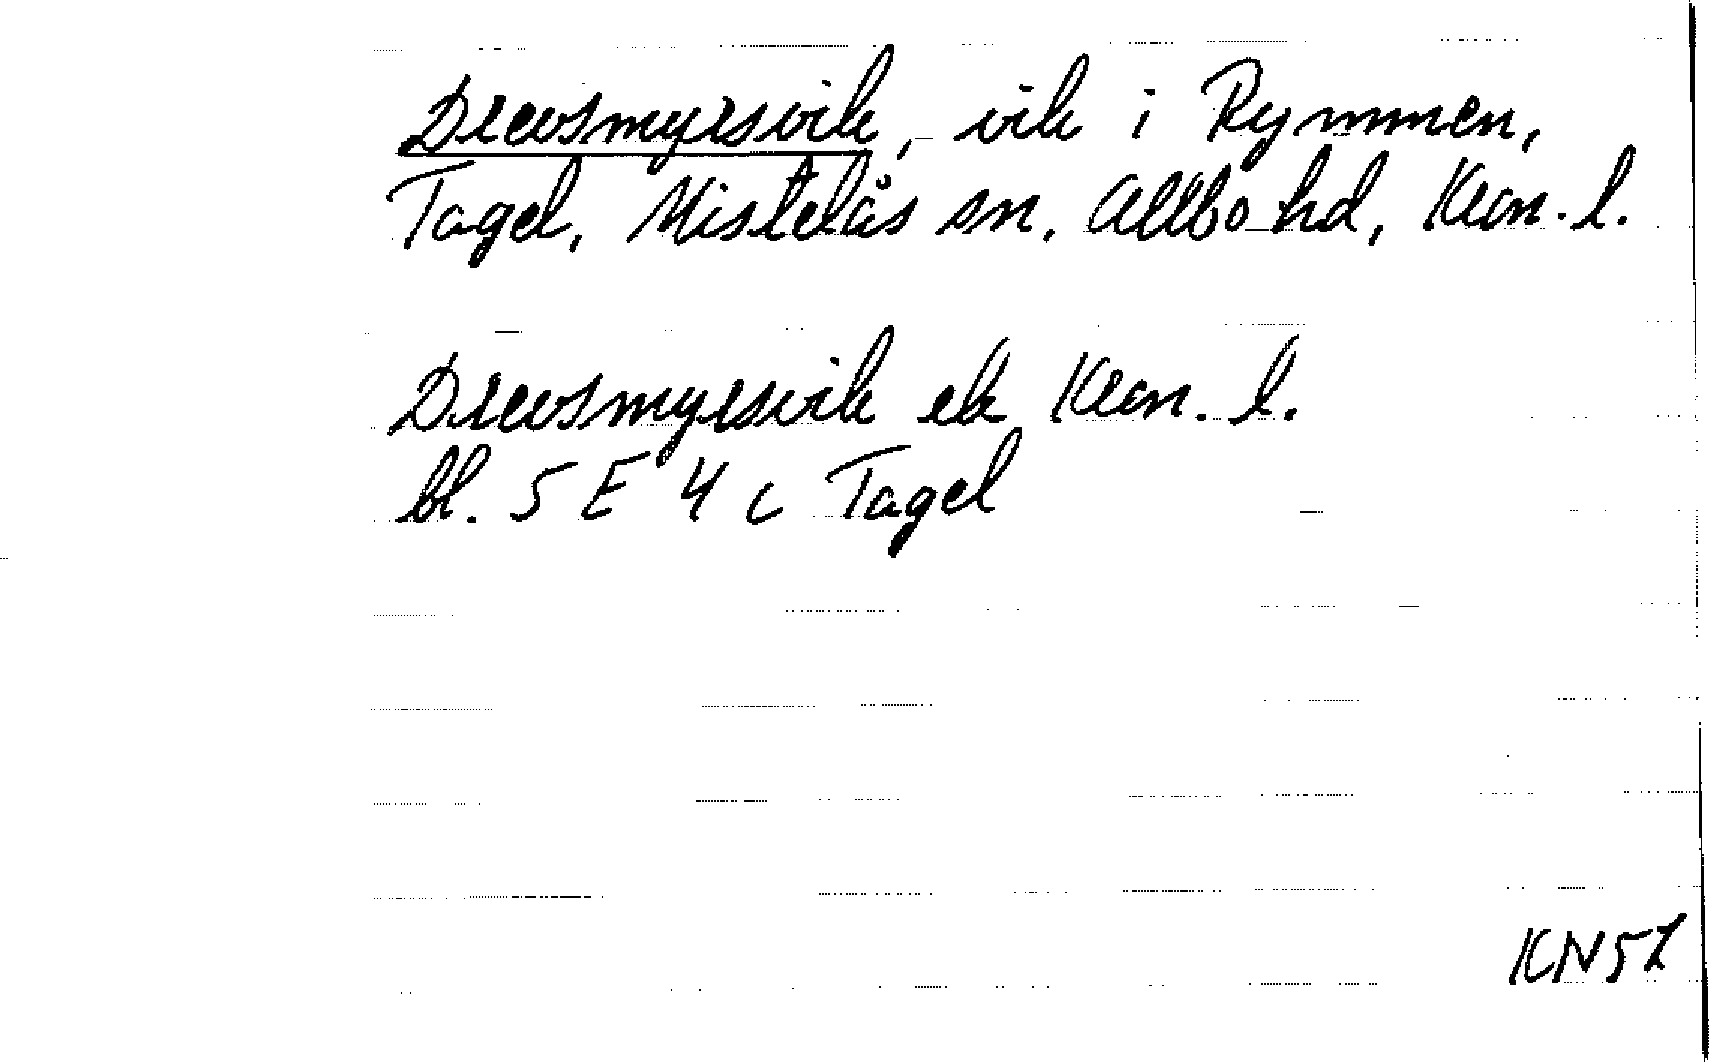 Drevsmyrsvik, vik i Rymmen,
Tagel, Mistelås sn. Allbo hd, Kron. l.
Drevsmyrsvik ek Kron. l.
bl. 5 E 4 c Tagel